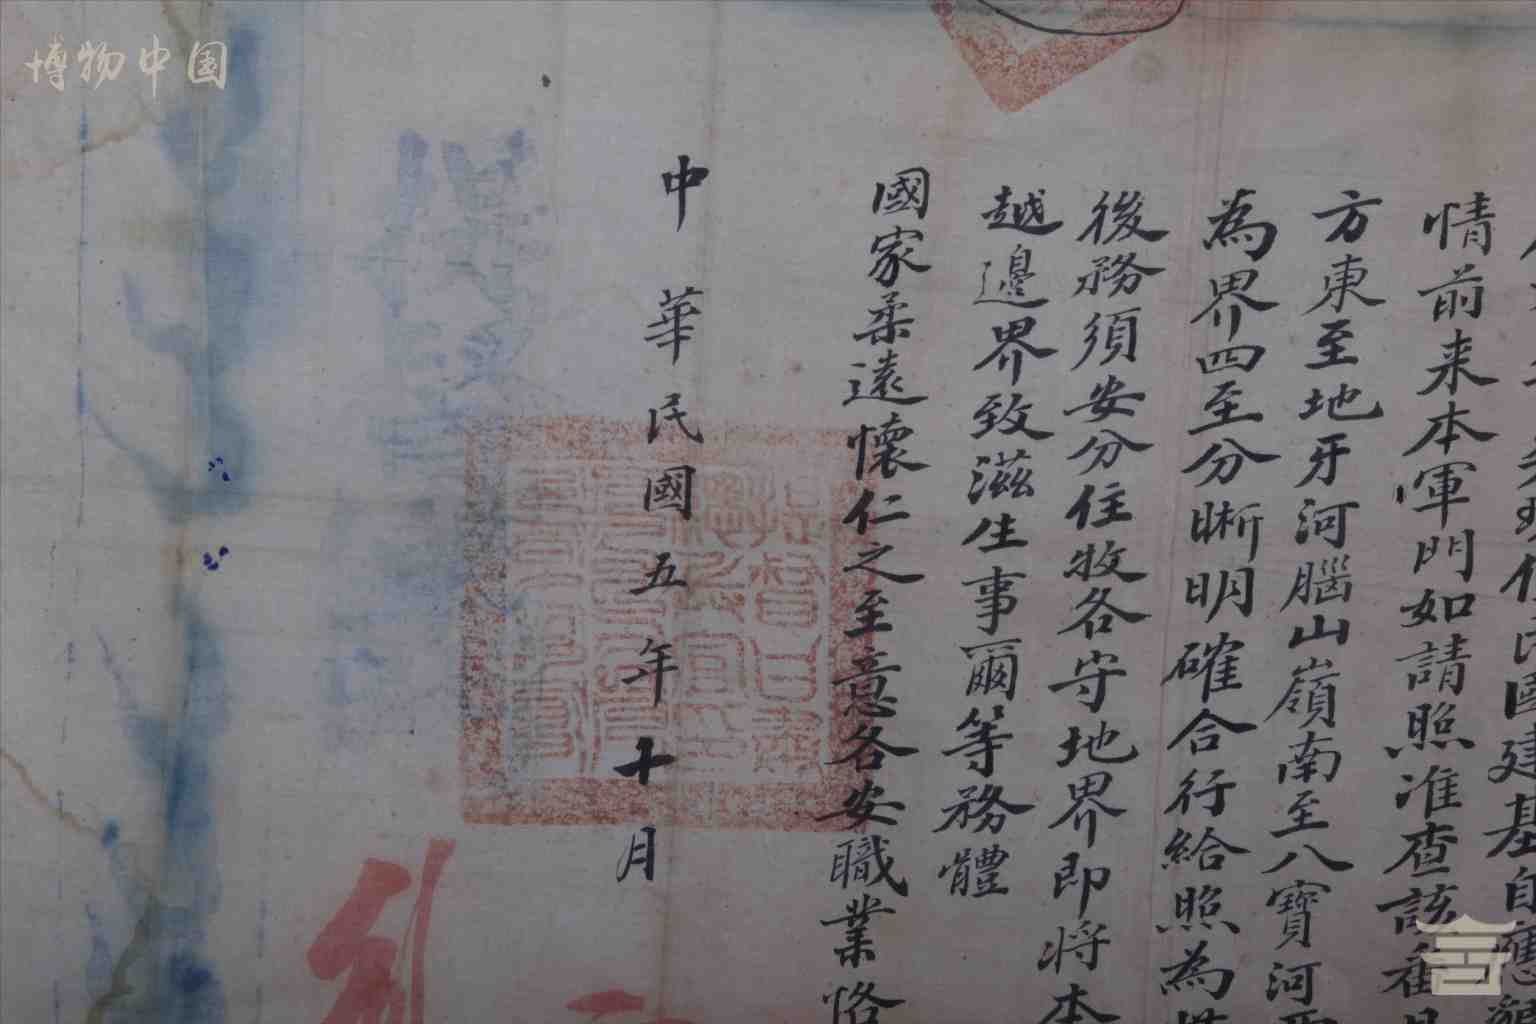 博物中国
民國建基自應
情前来本軍門如請照准查該番
方東至地牙河腦山嶺南至八寶河
為界四至分晰明確合行給照為
後務須安分住牧各守地界即将本
越邊界致滋生事爾等務體
國家柔遠懷仁之至意各安職業恪
中華民國五年十月